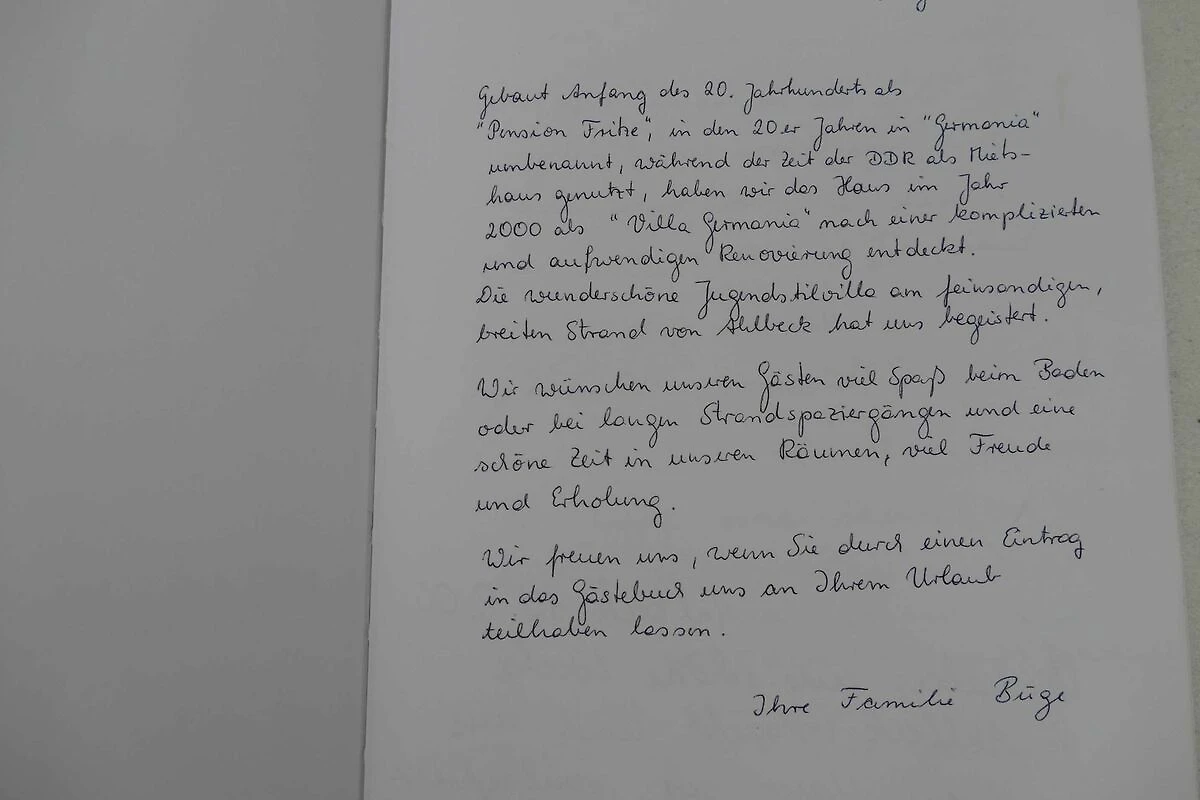 Gebaut Anfang des 20. Jahrhunderts als
"Pension Fritze", in den 20er Jahren in "Germania"
umbenannt, während der Zeit der DDR als Miets-
haus genutzt, haben wir das Haus im Jahr
2000 als "Villa Germania" nach einer komplizierten
und aufwendigen Renovierung entdeckt.
Die wunderschöne Jugendstilvilla am feinsandigen,
breiten Strand von Ahlbeck hat uns begeistert.
Wir wünschen unseren Gästen viel Spaß beim Baden
oder bei langen Strandspaziergängen und eine
schöne Zeit in unseren Räumen, viel Freude
und Erholung.
Wir freuen uns, wenn Sie durch einen Eintrag
in das Gästebuch uns an Ihrem Urlaub
teilhaben lassen.
Ihre Familie Büge